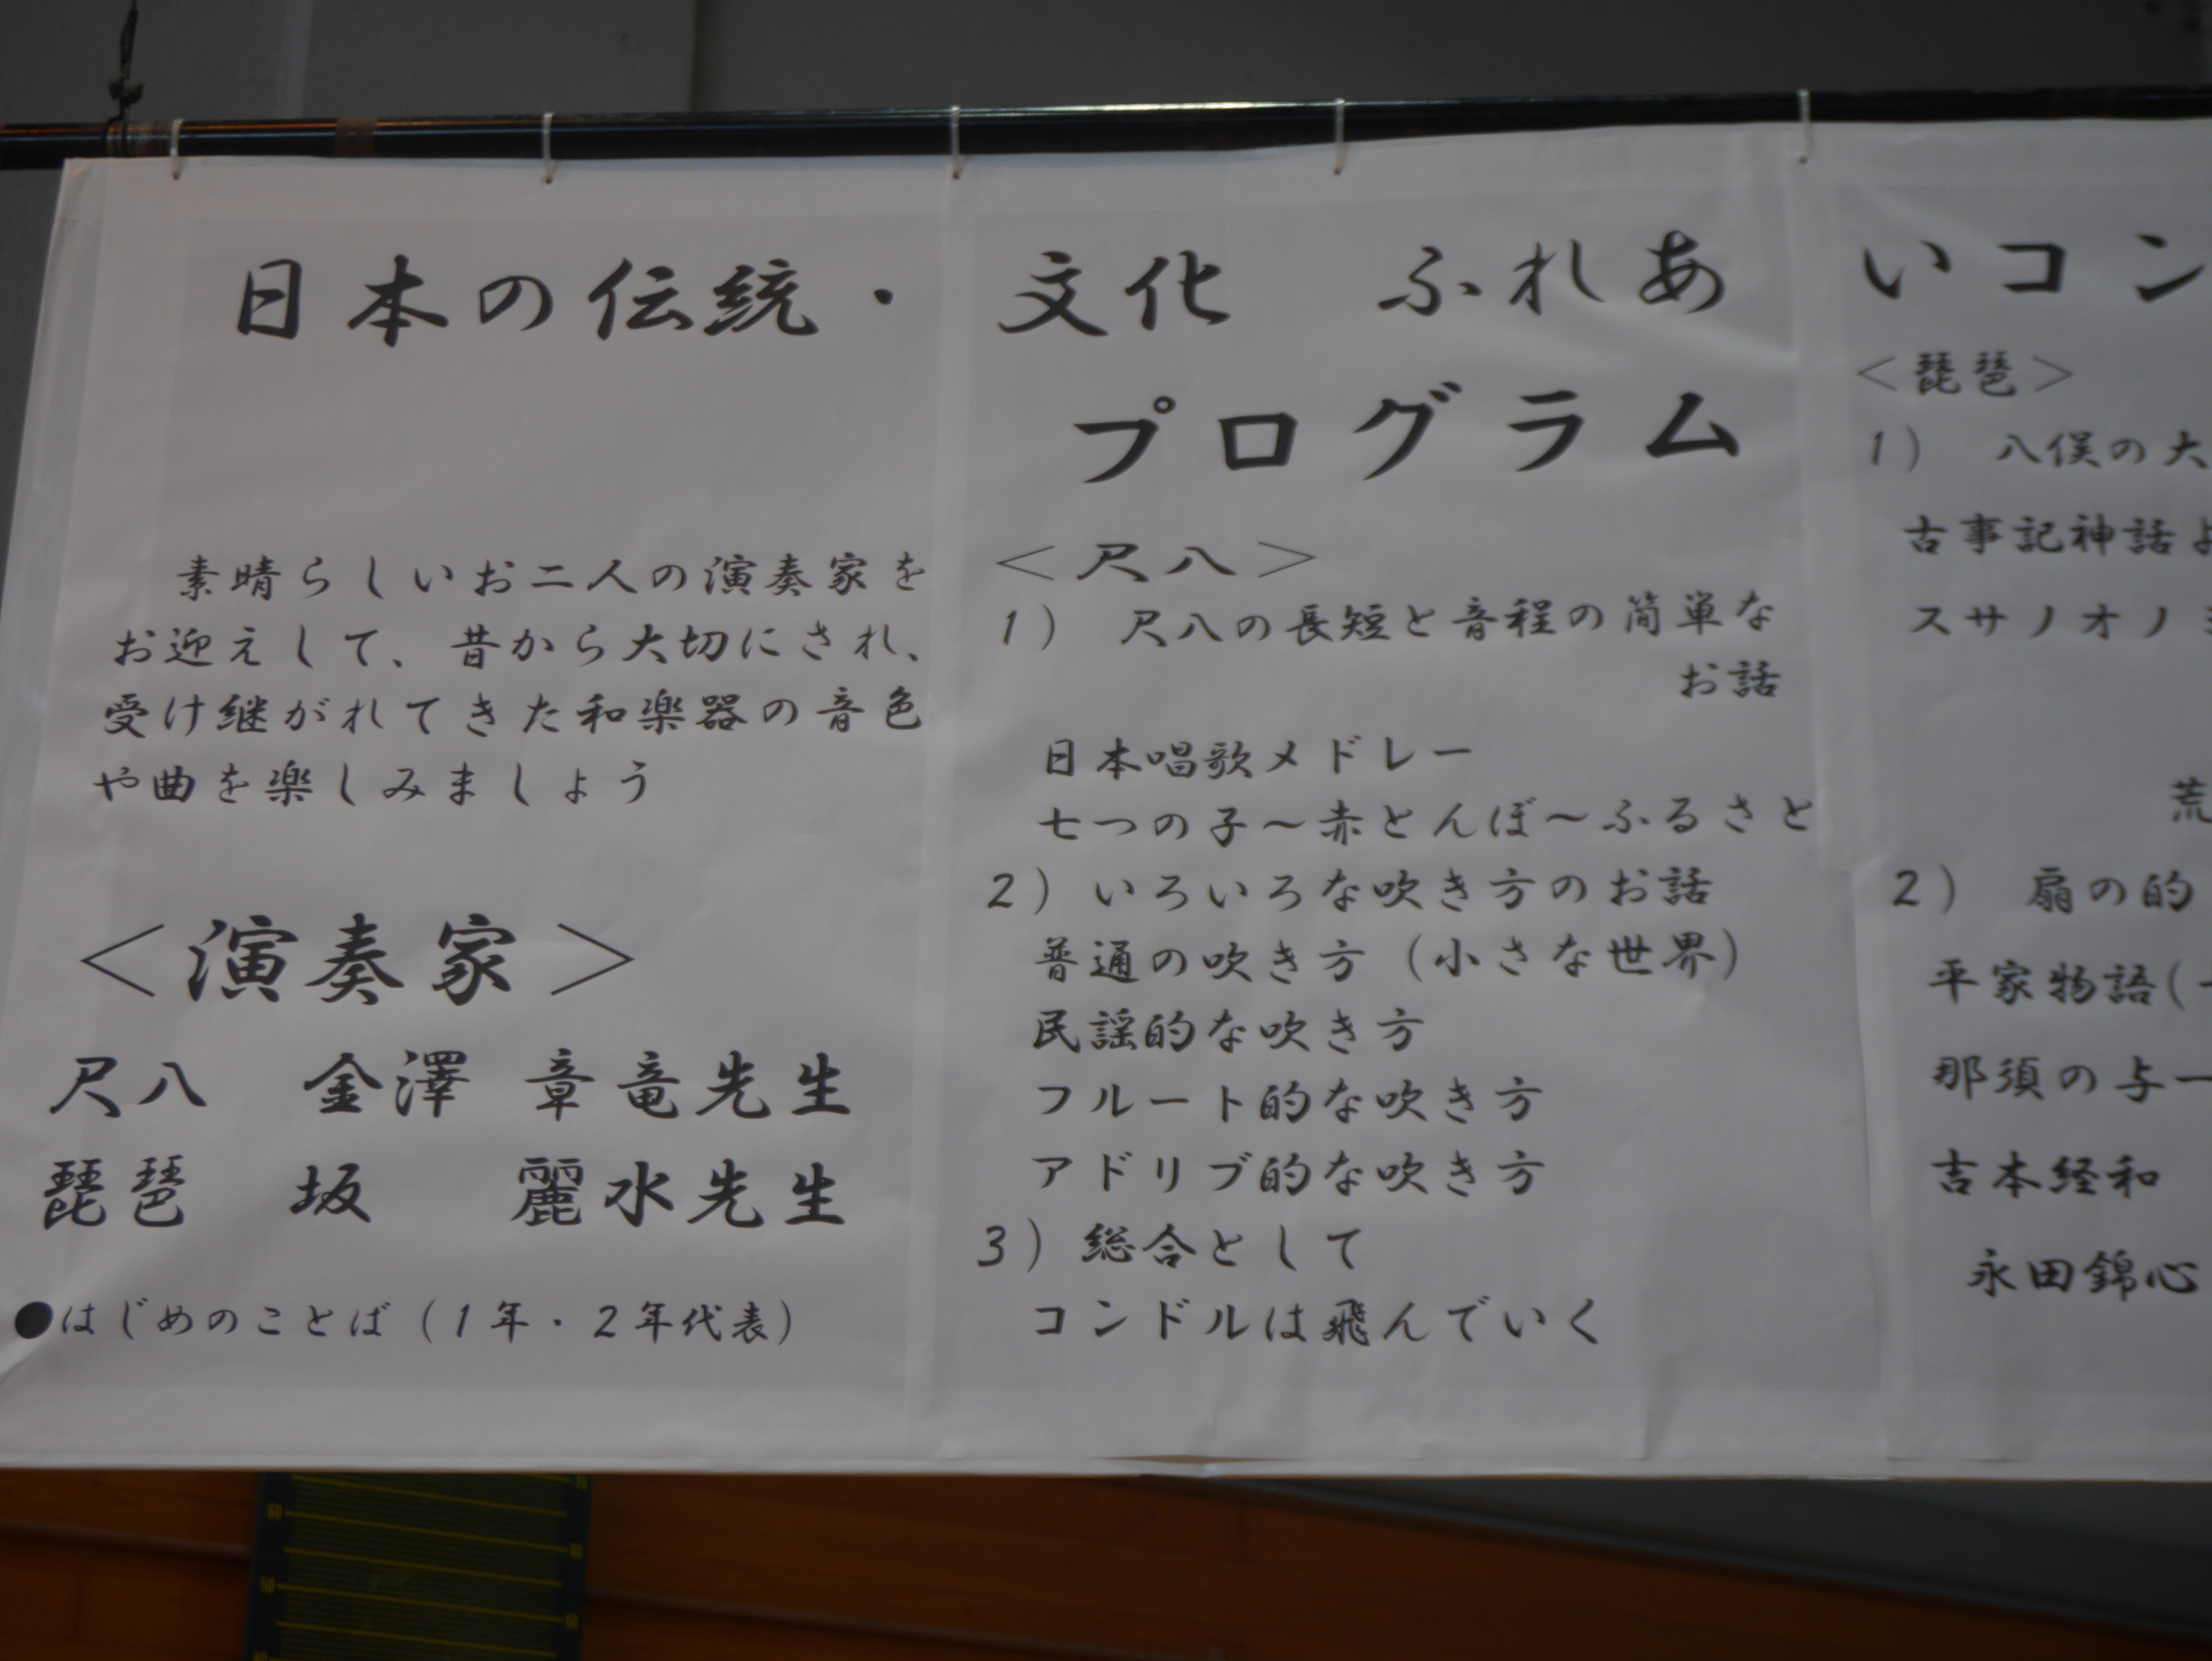 日本の伝統・文化 ふれあいコン
プログラム
素晴らしいお二人の演奏家を
お迎えして、昔から大切にされ、
受け継がれてきた和楽器の音色
や曲を楽しみましょう
＜演奏家＞
尺八 金澤 章竜先生
琵琶 坂 麗水先生
●はじめのことば（1年・2年代表）
＜尺八＞
1） 尺八の長短と音程の簡単な
お話
日本唱歌メドレー
七つの子～赤とんぼ～ふるさと
2）いろいろな吹き方のお話
普通の吹き方（小さな世界）
民謡的な吹き方
フルート的な吹き方
アドリブ的な吹き方
3）総合として
コンドルは飛んでいく
＜琵琶＞
1） 八俣の大
古事記神話よ
スサノオノミ
荒
2） 扇の的
平家物語(
那須の与一
吉本経和
永田錦心
70
60
60
50
50